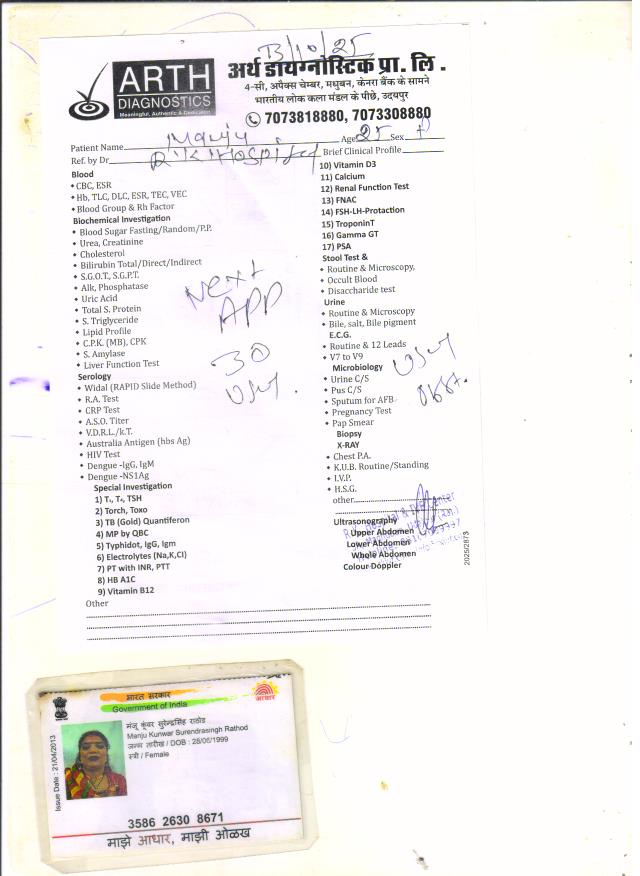 13/10/25
ARTH
DIAGNOSTICS
Meaningful, Authentic & Dedicated
अर्थ डायग्नोस्टिक प्रा. लि.
4-सी, अपैक्स चेम्बर, मधुबन, केनरा बैंक के सामने
भारतीय लोक कला मंडल के पीछे, उदयपुर
7073818880, 7073308880
Patient Name Manju Age 25 Sex F
Ref. by Dr R K Hospital Brief Clinical Profile
Blood
• CBC, ESR
• Hb, TLC, DLC, ESR, TEC, VEC
• Blood Group & Rh Factor
Biochemical Investigation
• Blood Sugar Fasting/Random/P.P.
• Urea, Creatinine
• Cholesterol
• Bilirubin Total/Direct/Indirect
• S.G.O.T., S.G.P.T.
• Alk, Phosphatase
• Uric Acid
• Total S. Protein
• S. Triglyceride
• Lipid Profile
• C.P.K. (MB), CPK
• S. Amylase
• Liver Function Test
Serology
• Widal (RAPID Slide Method)
• R.A. Test
• CRP Test
• A.S.O. Titer
• V.D.R.L./k.T.
• Australia Antigen (hbs Ag)
• HIV Test
• Dengue -IgG, IgM
• Dengue -NS1Ag
Special Investigation
1) T₃, T₄, TSH
2) Torch, Toxo
3) TB (Gold) Quantiferon
4) MP by QBC
5) Typhidot, IgG, Igm
6) Electrolytes (Na,K,Cl)
7) PT with INR, PTT
8) HB A1C
9) Vitamin B12
Other
Next
APP
30
USM
10) Vitamin D3
11) Calcium
12) Renal Function Test
13) FNAC
14) FSH-LH-Protaction
15) TroponinT
16) Gamma GT
17) PSA
Stool Test &
• Routine & Microscopy,
• Occult Blood
• Disaccharide test
Urine
• Routine & Microscopy
• Bile, salt, Bile pigment
E.C.G.
• Routine & 12 Leads
• V7 to V9
Microbiology
• Urine C/S
• Pus C/S
• Sputum for AFB
• Pregnancy Test
• Pap Smear
Biopsy
X-RAY
• Chest P.A.
• K.U.B. Routine/Standing
• I.V.P.
• H.S.G.
other
Ultrasonography
Upper Abdomen
Lower Abdomen
Whole Abdomen
Colour Doppler
USM
2025/2873
भारत सरकार
Government of India
आधार
मंजू कुंवर सुरेन्द्रसिंह राठोड
Manju Kunwar Surendrasingh Rathod
जन्म तारीख / DOB : 28/06/1999
स्त्री / Female
Issue Date : 21/04/2013
3586 2630 8671
माझे आधार, माझी ओळख